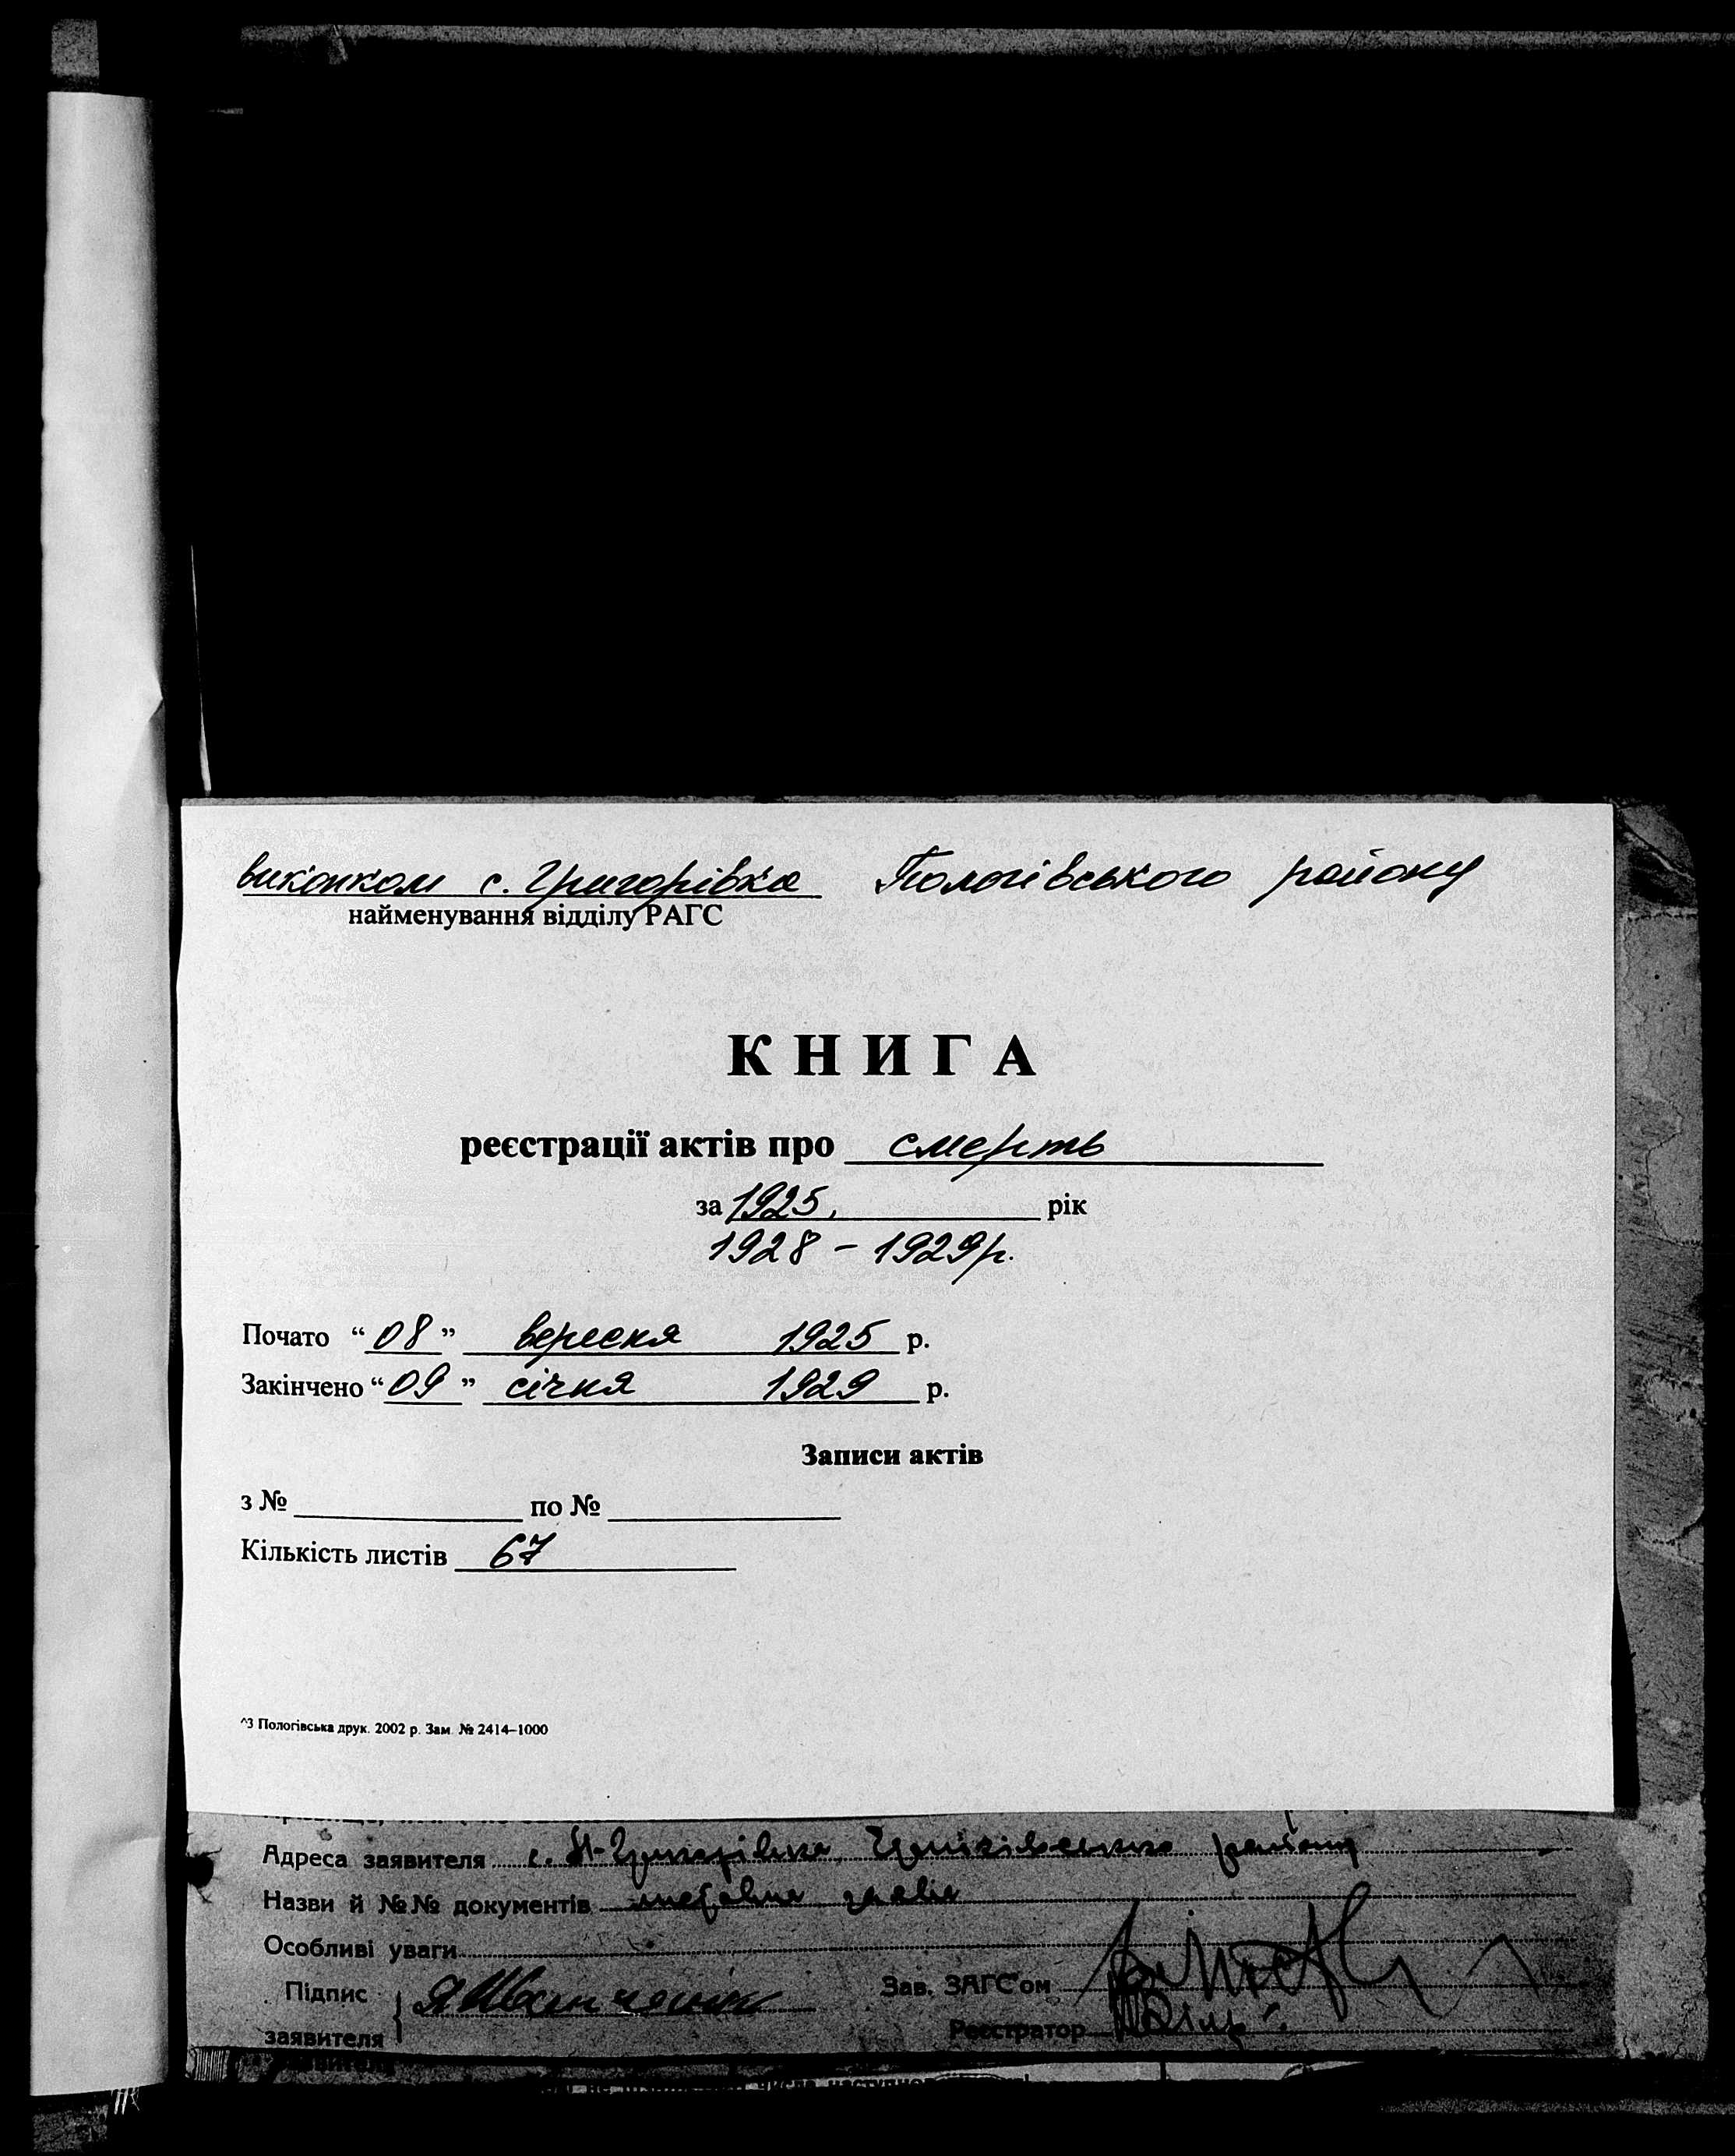 виконком с. Григорівка Пологівського району
найменування відділу РАГС
КНИГА
реєстрації актів про смерть
за 1925, рік
1928 - 1929р.
Почато “08” вересня 1925 р.
Закінчено “09” січня 1929 р.
Записи актів
з № по №
Кількість листів 67
^З Пологівська друк. 2002 р. Зам. № 2414–1000
Адреса заявителя с. району
Назви й №№ документів
Особливі уваги
Підпис
заявителя
Зав. ЗАГС'ом
Реєстратор